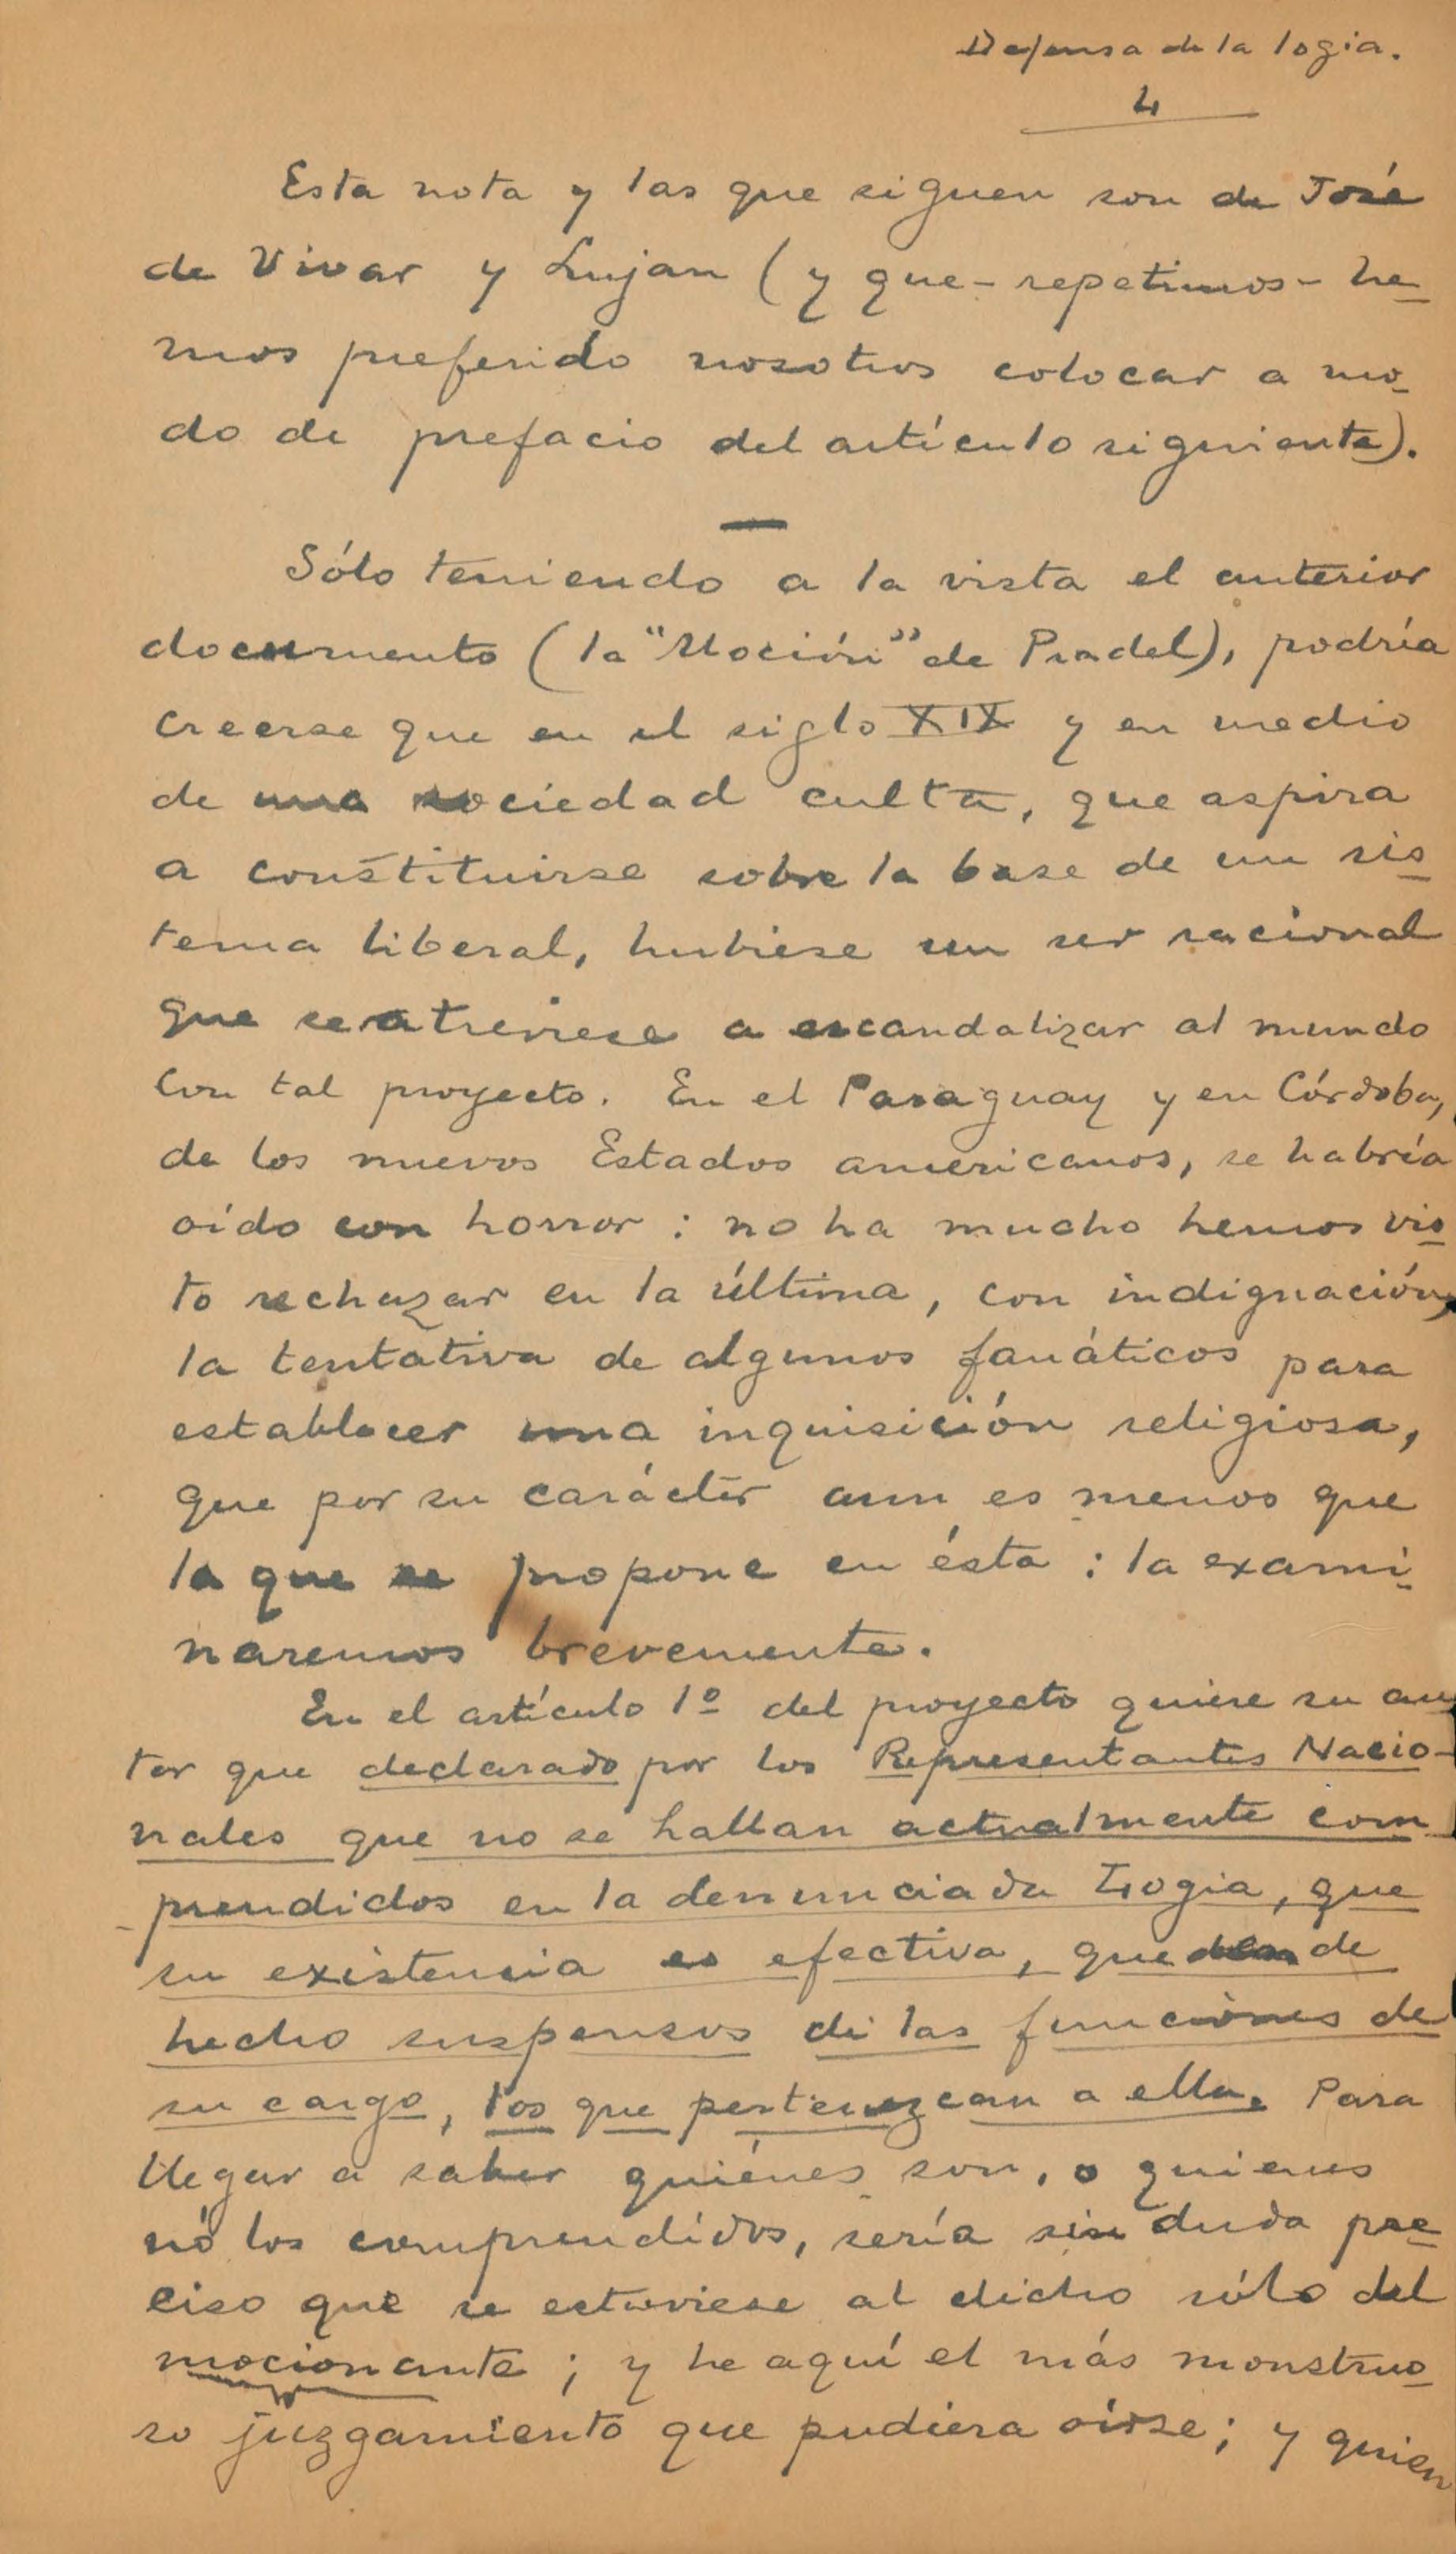 Defensa de la logia.
4
Esta nota y las que siguen son de José
de Vivar y Lujan (y que - repetimos - he-
mos preferido nosotros colocar a mo-
do de prefacio del artículo siguiente).
Sólo teniendo a la vista el anterior
documento (la "Moción" de Pradel), podría
creerse que en el siglo XIX y en medio
de una sociedad culta, que aspira
a constituirse sobre la base de un sis-
tema liberal, hubiese un ser racional
que se atreviese a escandalizar al mundo
con tal proyecto. En el Paraguay y en Córdoba,
de los nuevos Estados americanos, se habría
oído con horror: no ha mucho hemos vis-
to rechazar en la última, con indignación,
la tentativa de algunos fanáticos para
establecer una inquisición religiosa,
que por su carácter aun es menos que
la que se propone en ésta: la exami-
naremos brevemente.
En el artículo 1º del proyecto quiere su au-
tor que declarado por los Representantes Nacio-
nales que no se hallan actualmente com-
prendidos en la denunciada Logia, que
su existencia es efectiva, queden de
hecho suspensos de las funciones de
su cargo, los que pertenezcan a ella. Para
llegar a saber quiénes son, o quienes
nó los comprendidos, sería sin duda pre-
ciso que se estuviese al dicho sólo del
mocionante; y he aquí el más monstruo-
so juzgamiento que pudiera oirse; y quien